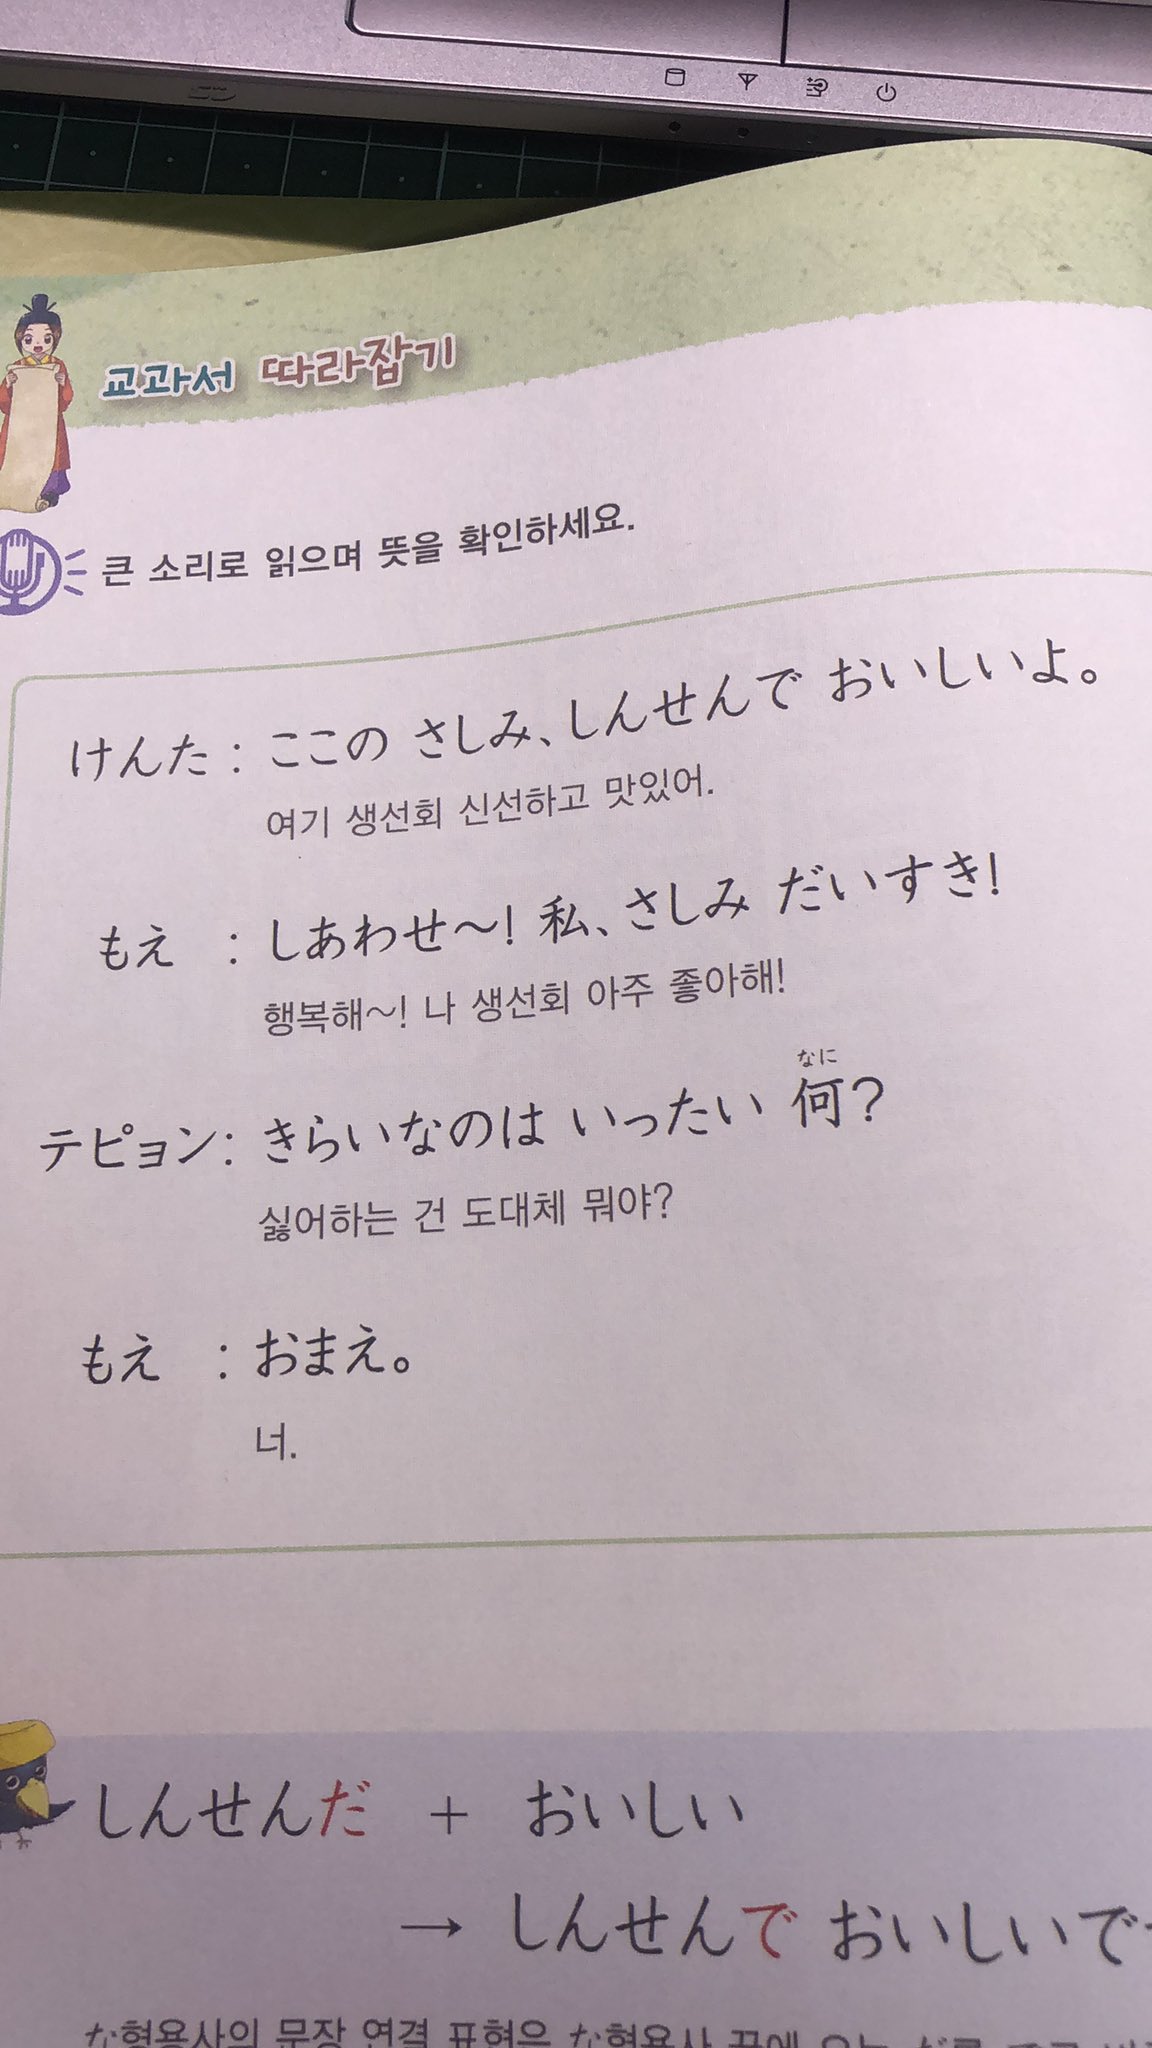 교과서 따라잡기
큰 소리로 읽으며 뜻을 확인하세요.
けんた : ここの さしみ、しんせんで おいしいよ。
여기 생선회 신선하고 맛있어.
もえ : しあわせ～! 私、さしみ だいすき!
행복해～! 나 생선회 아주 좋아해!
なに
テピョン: きらいなのは いったい 何?
싫어하는 건 도대체 뭐야?
もえ : おまえ。
너.
しんせんだ + おいしい
→ しんせんで おいしいで
な형용사의 문장 연결 표현은 な형용사 끝에 오는 だ를